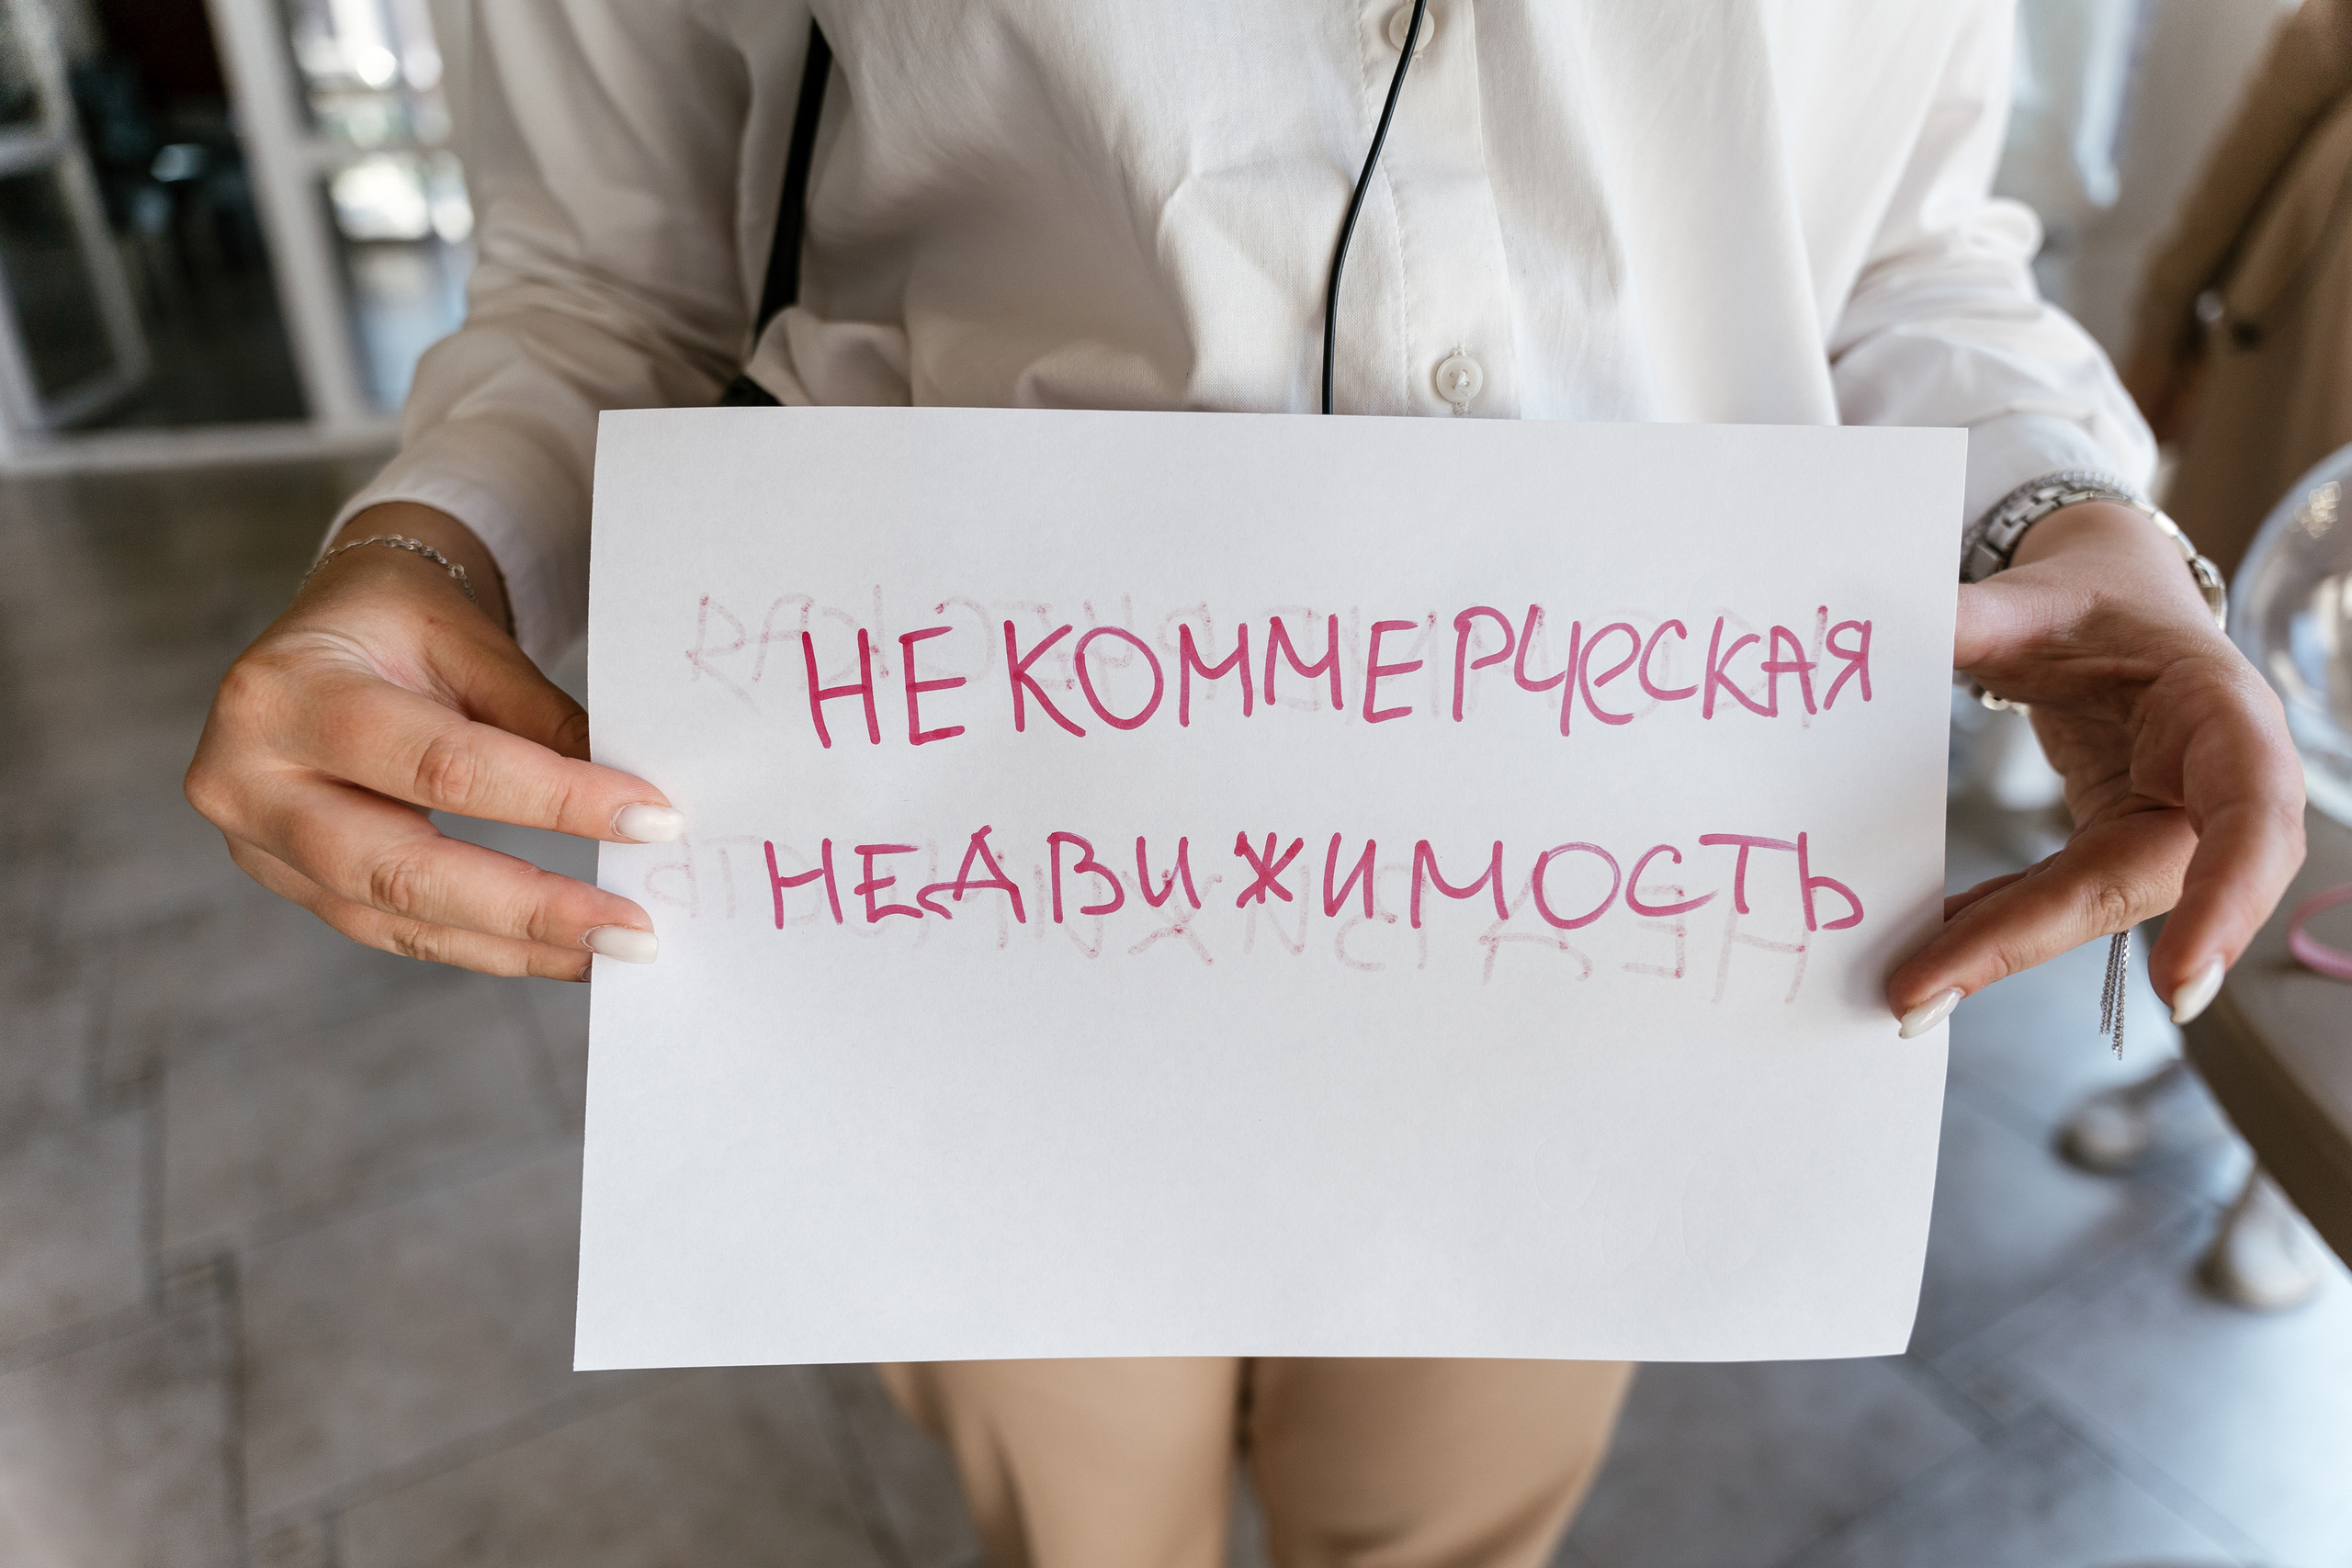 НЕКОММЕРЧЕСКАЯ
НЕДВИЖИМОСТЬ